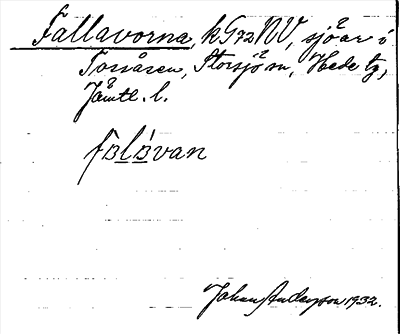 Fallavorna, k G72NV, sjöar i
Torråsen, Storsjö sn, Hede tg,
Jämtl. l.
falåvan
Johan Anderzon 1932.